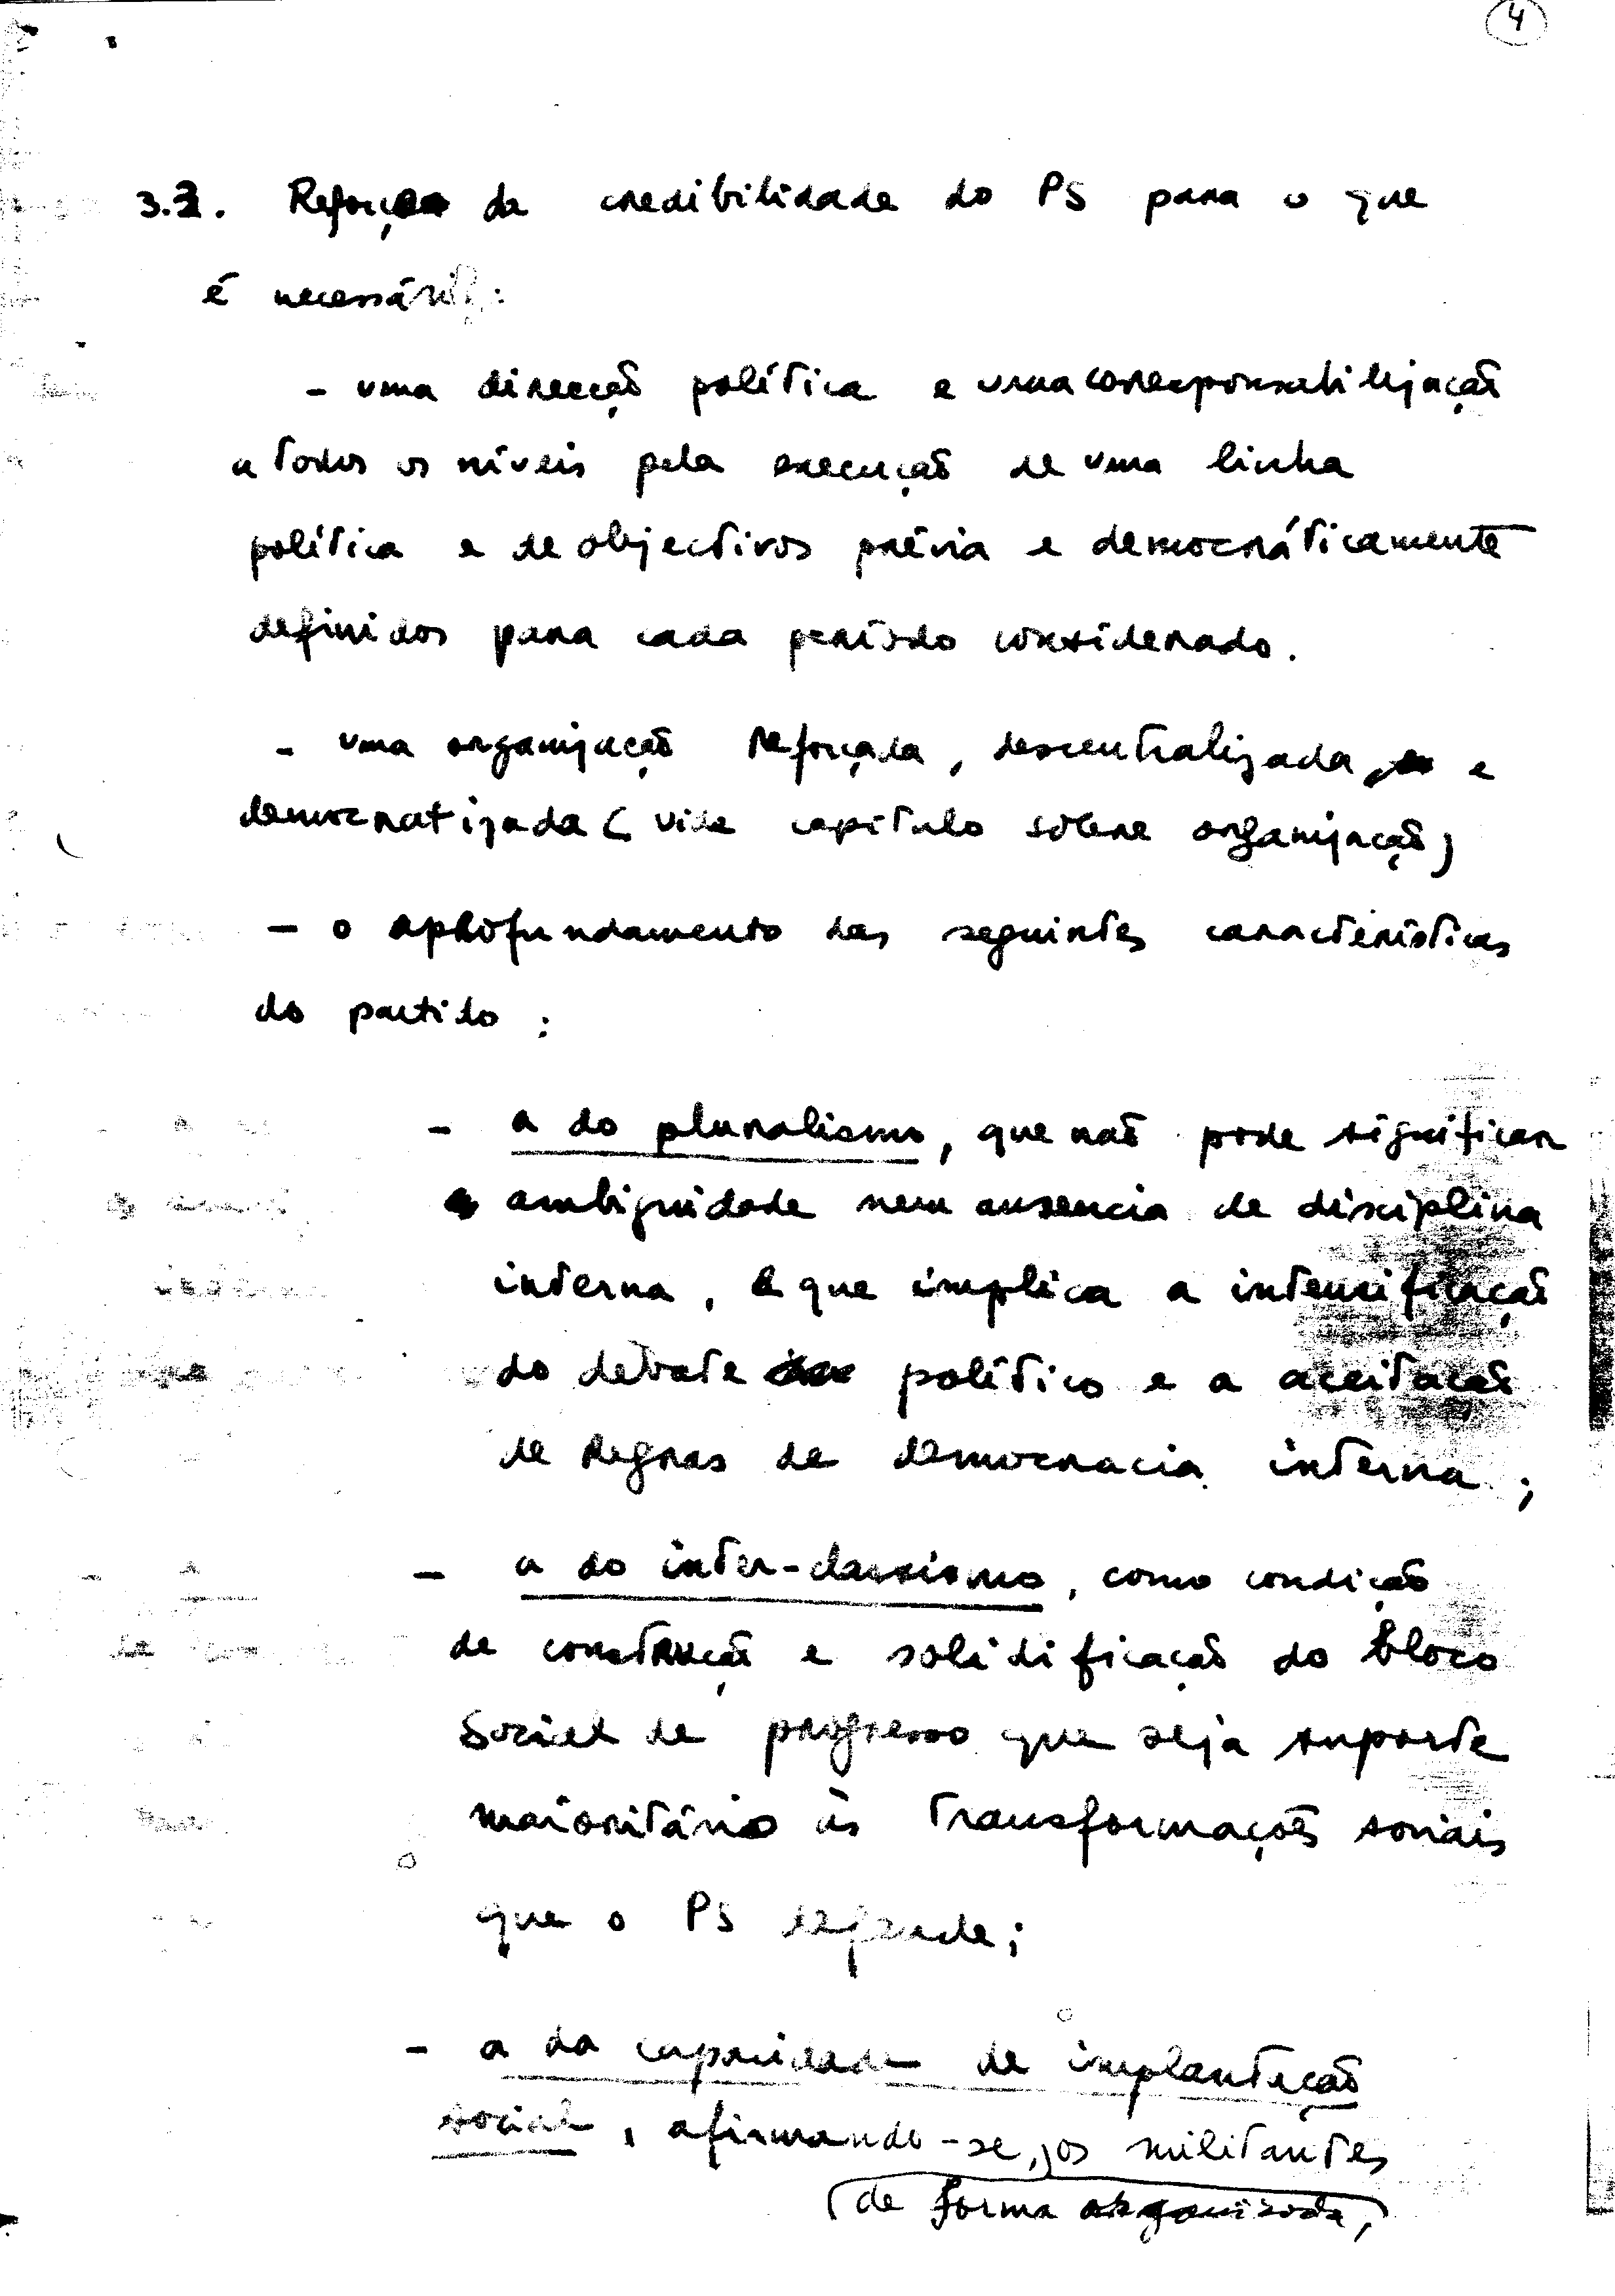 4
3.3. Reforço da credibilidade do PS para o que
é necessário:
- uma direcção política e uma coresponsabilização
a todos os níveis pela execução de uma linha
política e de objectivos prévia e democráticamente
definidos para cada período considerado.
- uma organização reforçada, descentralizada, e
democratizada (vide capítulo sobre organização)
- o aprofundamento das seguintes características
do partido :
- a do pluralismo, que não pode significar
ambiguidade nem ausencia de disciplina
interna, e que implica a intensificação
do debate político e a aceitação
de regras de democracia interna ;
- a do inter-classismo, como condição
de construção e solidificação do bloco
social de progresso que seja suporte
maioritário às transformações sociais
que o PS defende;
- a da capacidade de implantação
social, afirmando-se, os militantes
de forma organizada,